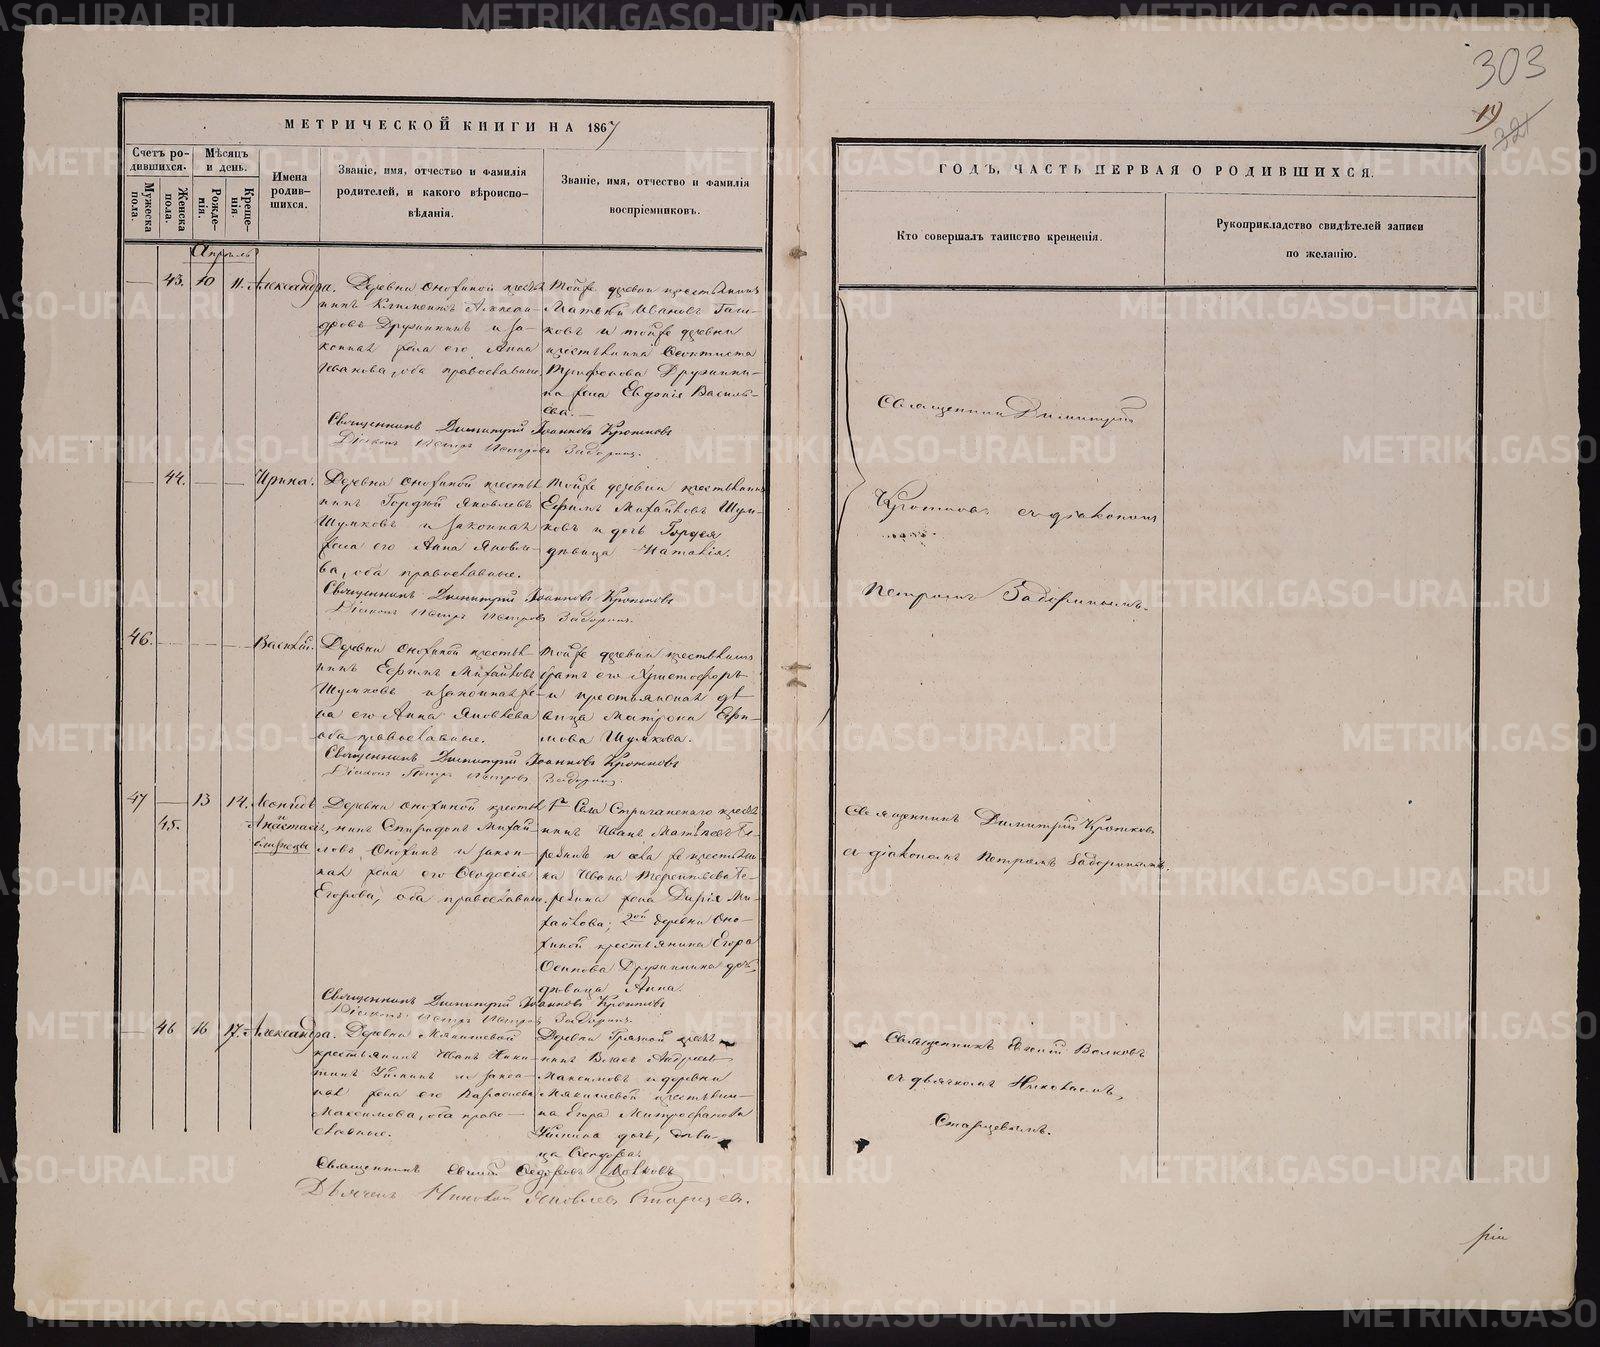 МЕТРИЧЕСКОЙ КНИГИ НА 1867
Счетъ родившихся.
Мужеска пола.
Женска пола.
Мѣсяцъ и день.
Рожденія.
Крещенія.
Имена родившихся.
Званіе, имя, отчество и фамилія родителей, и какого вѣроисповѣданія.
Званіе, имя, отчество и фамилія воспріемниковъ.
Апрѣль
43. 10 11. Александра.
Деревни Онохиной крестьянинъ Климентъ Александровъ Дружининъ и законная жена его Анна Иванова, оба православные.
Тойже деревни крестьянинъ Матвѣй Ивановъ и тойже деревни крестьянина Трифонова Дружинина жена Евдокія Васильева.
Священникъ Димитрій Іоанновъ Кротковъ
Діаконъ Петръ Петровъ Задоринъ.
44. Ирина.
Деревни Онохиной крестьянинъ Гордѣй Яковлевъ Шумковъ и законная жена его Анна Яковлева, оба православные.
Тойже деревни крестьянинъ Ефимъ Михайловъ Шумковъ и дочь Гордея дѣвица Наталія.
Священникъ Димитрій Іоанновъ Кротковъ
Діаконъ Петръ Петровъ Задоринъ.
46. Василій.
Деревни Онохиной крестьянинъ Ефимъ Михайловъ Шумковъ и законная жена его Анна Яковлева оба православные.
Тойже деревни крестьянинъ братъ его Христофоръ и крестьянская дѣвица Матрона Ефимова Шумкова.
Священникъ Димитрій Іоанновъ Кротковъ
Діаконъ Петръ Петровъ Задоринъ.
47 13 14. Леонидъ
45. Анастасія, близнецы
Деревни Онохиной крестьянинъ Спиридонъ Михайловъ Онохинъ и законная жена его Ѳеодосія Егорова, оба православные.
1го Села Стриганскаго крестьянинъ Иванъ Матвѣевъ и села же крестьянина Ивана Терентьева жена Дарія Михайлова; 2ой деревни Онохиной крестьянина Егора Осипова Дружинина дочь, дѣвица Анна.
Священникъ Димитрій Іоанновъ Кротковъ
Діаконъ Петръ Петровъ Задоринъ.
46 16 17. Александра.
Деревни Мякишевой крестьянинъ Иванъ Никитинъ и законная жена его Параскева Максимова, оба православные.
Деревни Грязной крестьянинъ Власъ Андреевъ Максимовъ и деревни Мякишевой крестьянина Егора Митрофанова дочь, дѣвица Ѳеодора
Священникъ Евгеній Ѳедоровъ Волковъ
Дьячекъ Николай Яковлевъ Старцевъ.
303
19
321
ГОДЪ, ЧАСТЬ ПЕРВАЯ О РОДИВШИХСЯ.
Кто совершалъ таинство крещенія.
Рукоприкладство свидѣтелей записи по желанію.
Священникъ Димитрій
Кротковъ съ діакономъ
Петромъ Задоринымъ.
Священникъ Димитрій Кротковъ
съ діакономъ Петромъ Задоринымъ.
Священникъ Евгеній Волковъ
съ дьячкомъ Николаемъ
Старцевымъ.
METRIKI.GASO-URAL.RU